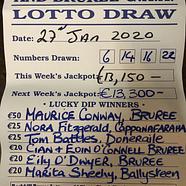 AND BRUREE
LOTTO DRAW
Date: 27th Jan 2020
Numbers Drawn: 6 14 16 22
This Week's Jackpot: €13,150 —
Next Week's Jackpot: €13,300 —
• LUCKY DIP WINNERS •
€50 Maurice Conway, Bruree
€25 Nora Fitzgerald, Cappanafaraha
€25 Tom Battles, Doneraile
€20 Cian & Eoin O'Connell Bruree
€20 Eily O'Dwyer, Bruree
€20 Marita Sheehy, Ballysteen